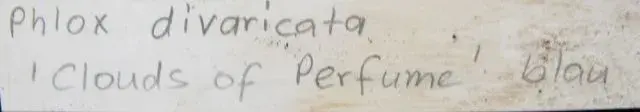 Phlox divaricata
'Clouds of Perfume' blau